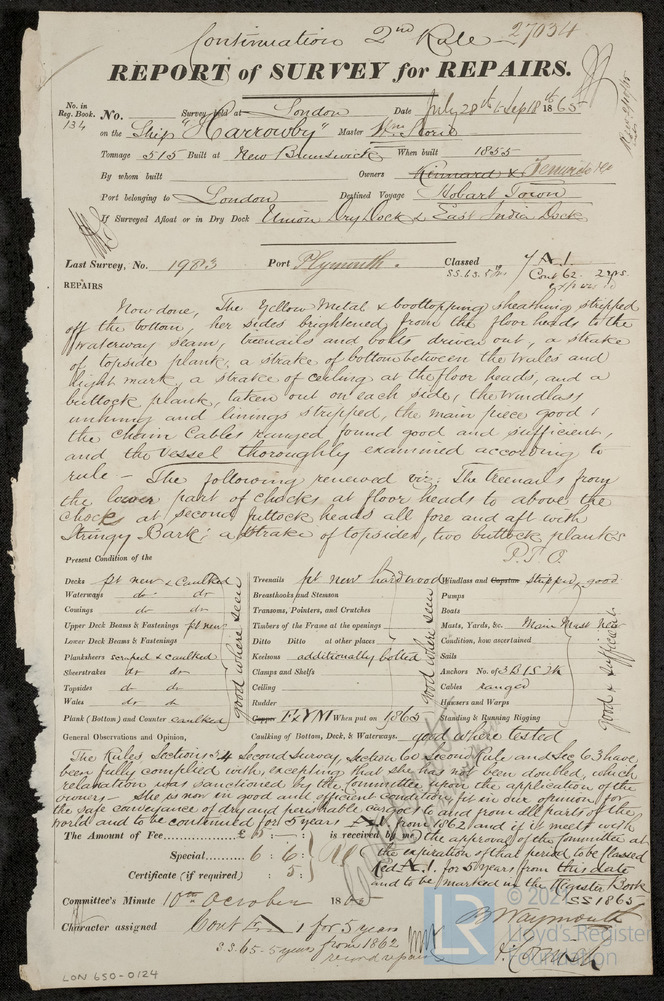 Continuation 2nd Rule 27034
REPORT of SURVEY for REPAIRS.
No. in Reg. Book. 134 No. Survey held at London Date July 20th to Sep 18th 1865
on the Ship "Harrowby" Master Wm
Tonnage 515 Built at New Brunswick When built 1855
By whom built Owners Kinnard &
Port belonging to London Destined Voyage Hobart Town
If Surveyed Afloat or in Dry Dock Union Dry Dock & East India Dock
Last Survey, No. 1983 Port Plymouth. Classed 7 A.1.
Cont 62 - 2 yrs
REPAIRS
Now done, The Yellow Metal & boottopping sheathing stripped
off the bottom, her sides brightened from the floor heads to the
Waterway seam, treenails and bolts driven out, a strake
of topside plank, a strake of bottom between the wales and
light mark, a strake of ceiling at the floor heads, and a
buttock plank, taken out on each side, the Windlass
unhung and linings stripped, the main piece good;
the Chain Cables ranged, found good and sufficient,
and the Vessel thoroughly examined according to
rule - The following renewed viz: The treenails from
the lower part of chocks at floor heads to above the
chocks at second futtock heads all fore and aft with
Stringy Bark; a strake of topsides, two buttock planks
P.T.O.
Present Condition of the
Decks pt new & caulked
Waterways do do
Comings do do
Upper Deck Beams & Fastenings pt new
Lower Deck Beams & Fastenings
Planksheers scraped & caulked
Sheerstrakes do do
Topsides do do
Wales do do
Plank (Bottom) and Counter caulked
good where seen
Treenails pt new hardwood
Breasthooks and Stemson
Transoms, Pointers, and Crutches
Timbers of the Frame at the openings
Ditto Ditto at other places
Keelsons additionally bolted
Clamps and Shelfs
Ceiling
Rudder
Copper F & YM When put on 1865
good where seen
Windlass and Capstan stripped & good
Pumps
Boats
Masts, Yards, &c. Main Mast New
Condition, how ascertained
Sails
Anchors No. of 3 B 1 S 2 K
Cables ranged
Hawsers and Warps
Standing & Running Rigging
good & sufficient
General Observations and Opinion, Caulking of Bottom, Deck, & Waterways. good where tested
The Rules Sections 54 Second Survey, Section 60 second Rule and Sec 63 have
been fully complied with, excepting that she has not been doubled, which
relaxation was sanctioned by the Committee upon the application of the
owners - She is now in good and efficient condition, fit in our opinion for
the safe conveyance of dry and perishable cargoes to and from all parts of the
world and to be continued for 5 years A 1 from 1862 and if it meets with
The Amount of Fee.......... £ 5 : - : is received by me, the approval of the Committee at
Special........ 6 : 6 : the expiration of that period to be classed
Certificate (if required) : 5 : Red A. 1. for 5 years from this date
and to be marked in the Register Book
Committee's Minute 10th October 1865 SS 1865
Character assigned Cont A 1 for 5 years
S.S. 65 - 5 years from 1862
record repairs
B Waymouth
J. Cornish
LR © 2021
Lloyd's Register
Foundation
LON 650-0124